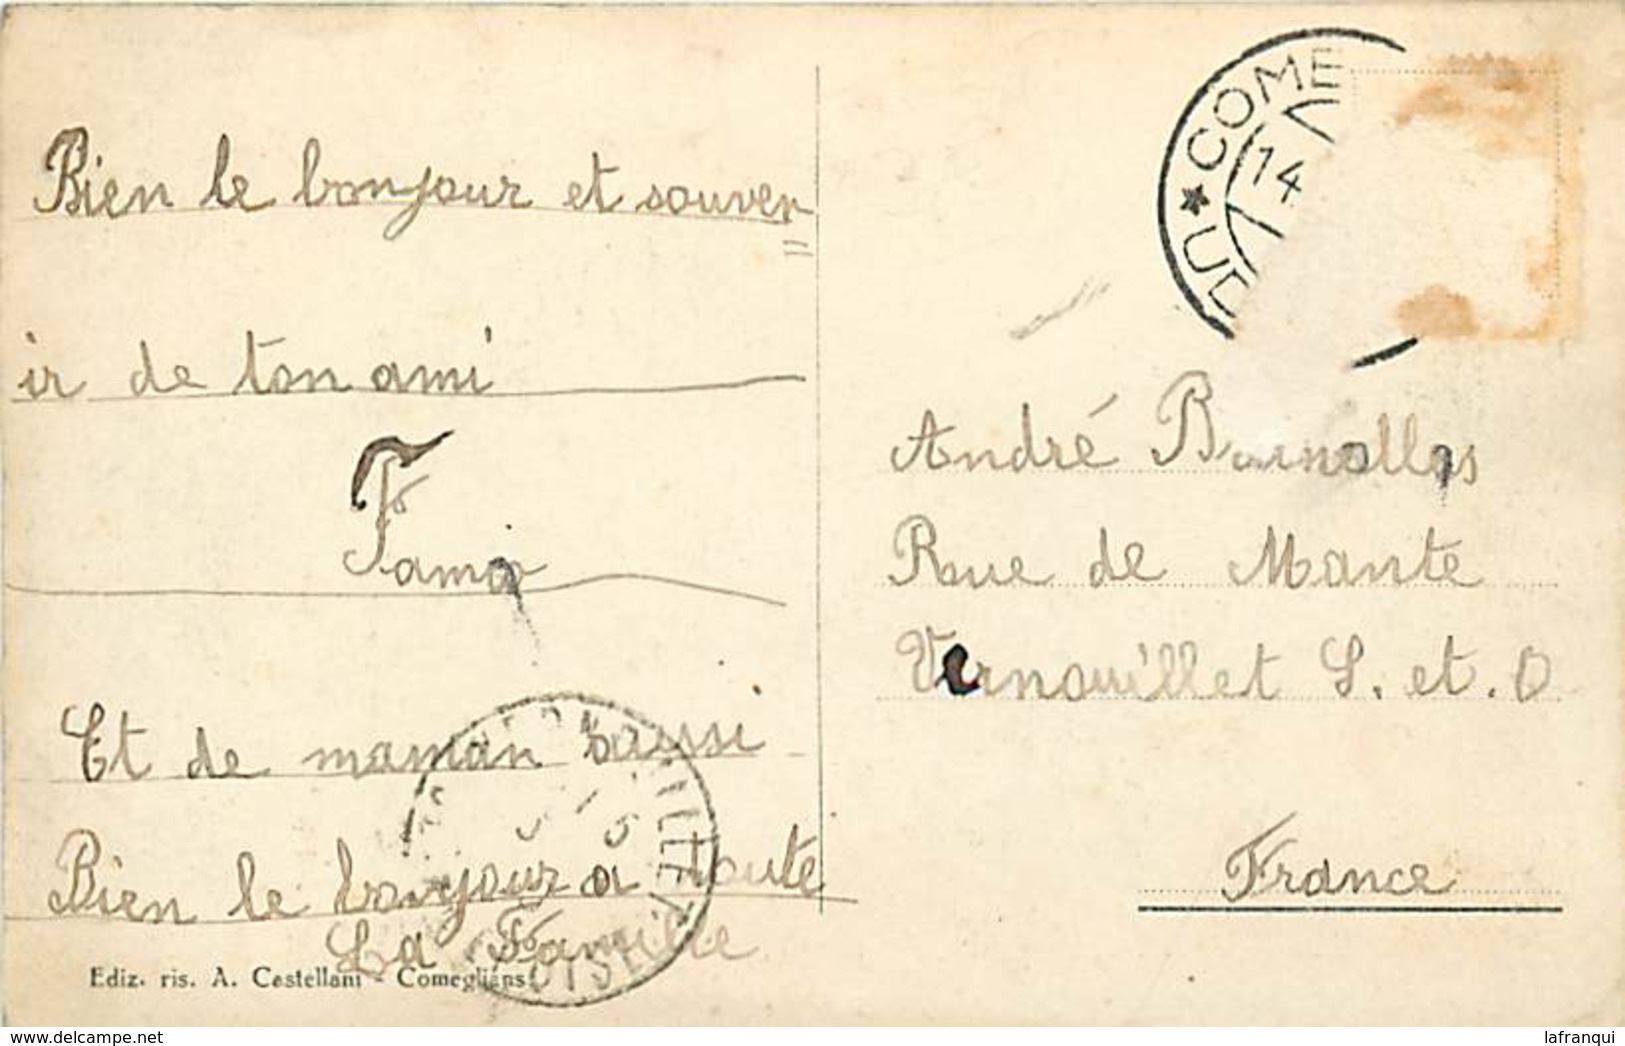 Bien le bonjour et souven
=
ir de ton ami
Et de maman aussi
Bien le bonjour a toute
La Famille
Ediz. ris. A. Castellani - Comeglians
★ COME
14
UD
André
Rue de Mante
Vernouillet S. et. O
France
OISE
www.delcampe.net
lafranqui